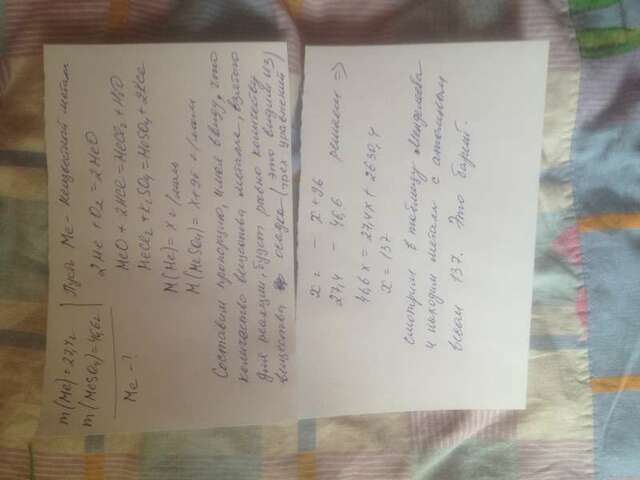 m(Me)=27,4г
m(MeSO4)=46,6г
Me - ?
Пусть Me - неизвестный металл
2Me + O2 = 2MeO
MeO + 2HCl = MeCl2 + H2O
MeCl2 + K2SO4 = MeSO4 + 2KCl
M(Me) = x г/моль
M(MeSO4) = x+96 г/моль
Составим пропорцию, имея ввиду, что
количество вещества металла, взятого
для реакции, будет равно количеству
вещества осадка (это видим из
трех уравнений)
x = - x+96
27,4 - 46,6 решаем =>
46,6x = 27,4x + 2630,4
x = 137
смотрим в таблицу Менделеева
и находим металл с атомным
весом 137. Это барий.